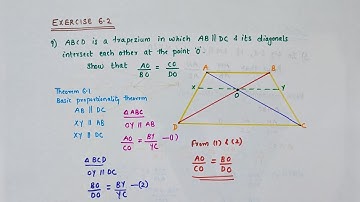 EXERCISE 6.2
9) ABCD is a trapezium in which AB || DC & its diagonals
intersect each other at the point 'O'.
Show that AO/BO = CO/DO
Theorem 6.1
Basic proportionality theorem
AB || DC
XY || AB
XY || DC
△ABC
OY || AB
AO/CO = BY/YC —(1)
△BCD
OY || DC
BO/DO = BY/YC —(2)
A
B
X
Y
O
D
C
From (1) & (2)
AO/CO = BO/DO